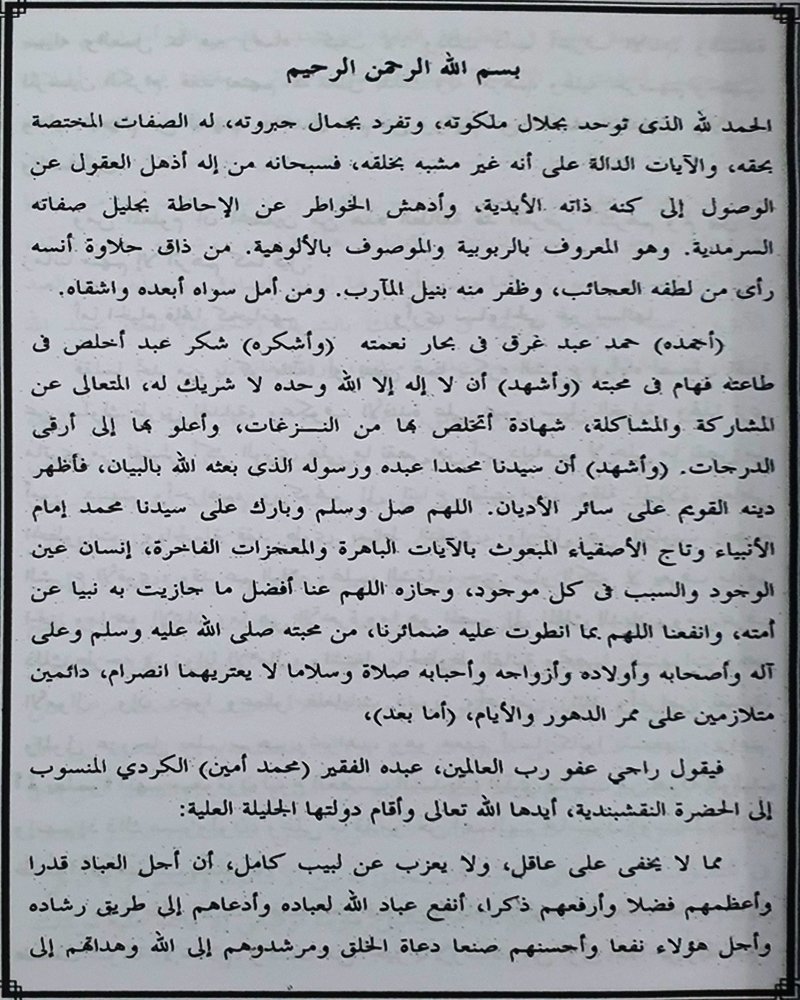 بسم الله الرحمن الرحيم
الحمد لله الذى توحد بجلال ملكوته، وتفرد بجمال جبروته، له الصفات المختصة
بحقه، والآيات الدالة على أنه غير مشبه بخلقه، فسبحانه من إله أذهل العقول عن
الوصول إلى كنه ذاته الأبدية، وأدهش الخواطر عن الإحاطة بجليل صفاته
السرمدية. وهو المعروف بالربوبية والموصوف بالألوهية. من ذاق حلاوة أنسه
رأى من لطفه العجائب، وظفر منه بنيل المآرب. ومن أمل سواه أبعده واشقاه.
(أحمده) حمد عبد غرق فى بحار نعمته (وأشكره) شكر عبد أخلص فى
طاعته فهام فى محبته (وأشهد) أن لا إله إلا الله وحده لا شريك له، المتعالى عن
المشاركة والمشاكلة، شهادة أتخلص بها من النـزغات، وأعلو بها إلى أرقى
الدرجات. (وأشهد) أن سيدنا محمدا عبده ورسوله الذى بعثه الله بالبيان، فأظهر
دينه القويم على سائر الأديان. اللهم صل وسلم وبارك على سيدنا محمد إمام
الأنبياء وتاج الأصفياء المبعوث بالآيات الباهرة والمعجزات الفاخرة، إنسان عين
الوجود والسبب فى كل موجود، وجازه اللهم عنا أفضل ما جازيت به نبيا عن
أمته، وانفعنا اللهم بما انطوت عليه ضمائرنا، من محبته صلى الله عليه وسلم وعلى
آله وأصحابه وأولاده وأزواجه وأحبابه صلاة وسلاما لا يعتريهما انصرام، دائمين
متلازمين على ممر الدهور والأيام، (أما بعد)،
فيقول راجي عفو رب العالمين، عبده الفقير (محمد أمين) الكردي المنسوب
إلى الحضرة النقشبندية، أيدها الله تعالى وأقام دولتها الجليلة العلية:
مما لا يخفى على عاقل، ولا يعزب عن لبيب كامل، أن أجل العباد قدرا
وأعظمهم فضلا وأرفعهم ذكرا، أنفع عباد الله لعباده وأدعاهم إلى طريق رشاده
وأجل هؤلاء نفعا وأحسنهم صنعا دعاة الخلق ومرشدوهم إلى الله وهداتهم إلى